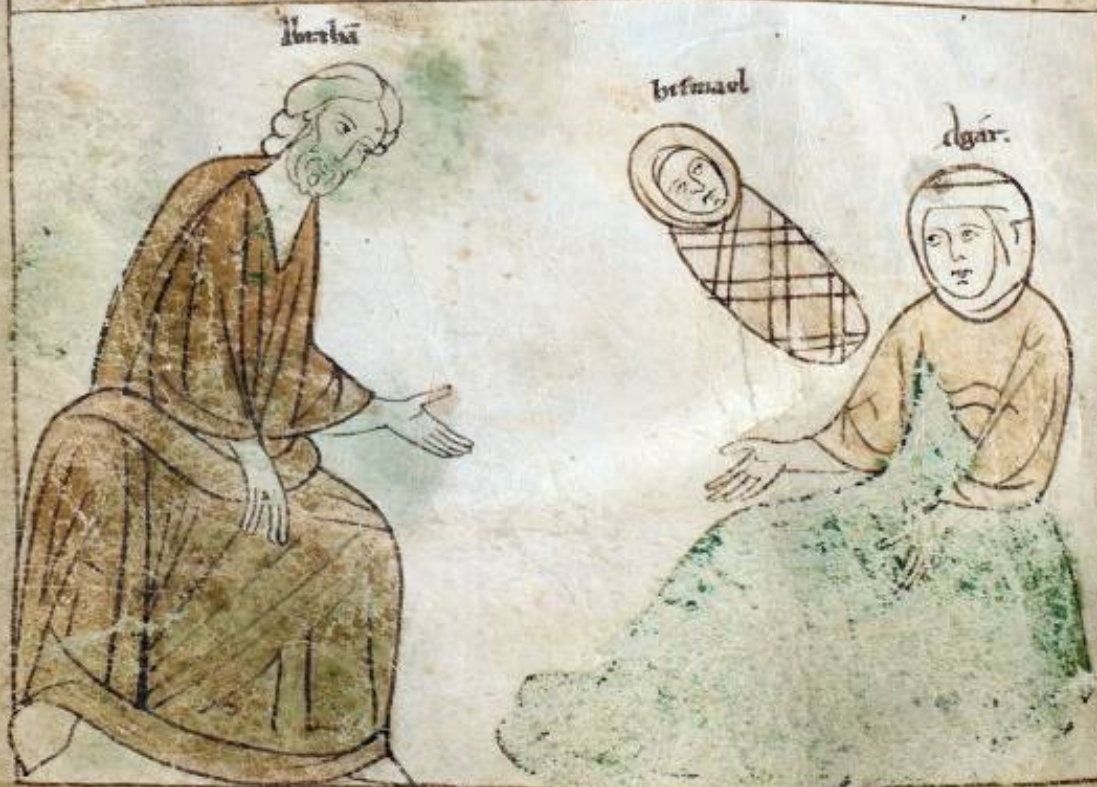 Abrahã
hismael
Agár.